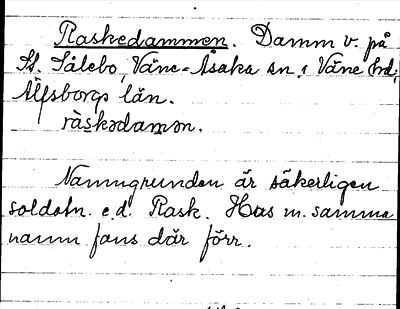 Raskedammen. Damm v. på
St. Sålebo, Väne-Åsaka sn., Väne hd,
Älfsborgs län.
ràskədamən.
Namngrunden är säkerligen
soldatn. e.d. Rask. Hus m. samma
namn fans där förr.